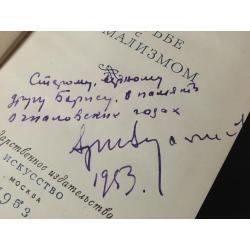 БЕ
МАЛИЗМОМ
Старому, верному
другу Борису, в память
о наловских годах
1953.
дарственное издательство
ИСКУССТВО
МОСКВА
1953